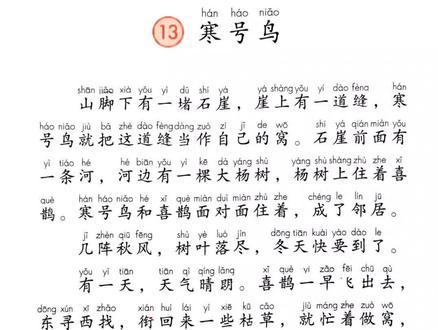 hán háo niǎo
13 寒号鸟
shān jiǎo xià yǒu yì dǔ shí yá yá shàng yǒu yí dào fèng hán
山脚下有一堵石崖，崖上有一道缝，寒
háo niǎo jiù bǎ zhè dào fèng dàng zuò zì jǐ de wō shí yá qián miàn yǒu
号鸟就把这道缝当作自己的窝。石崖前面有
yì tiáo hé hé biān yǒu yì kē dà yáng shù yáng shù shàng zhù zhe xǐ
一条河，河边有一棵大杨树，杨树上住着喜
què hán háo niǎo hé xǐ què miàn duì miàn zhù zhe chéng le lín jū
鹊。寒号鸟和喜鹊面对面住着，成了邻居。
jǐ zhèn qiū fēng shù yè luò jìn dōng tiān kuài yào dào le
几阵秋风，树叶落尽，冬天快要到了。
yǒu yì tiān tiān qì qíng lǎng xǐ què yì zǎo fēi chū qù
有一天，天气晴朗。喜鹊一早飞出去，
dōng xún xī zhǎo xián huí lái yì xiē kū cǎo jiù máng zhe zuò wō
东寻西找，衔回来一些枯草，就忙着做窝，